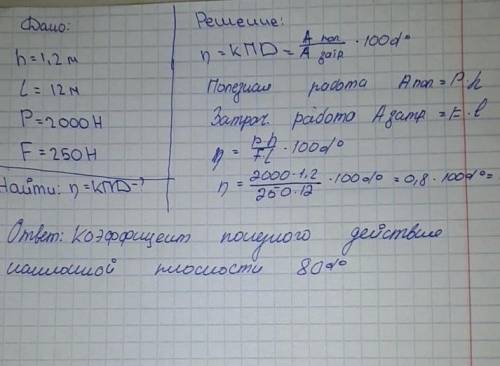 Дано:
h = 1,2 м
l = 12 м
P = 2000 Н
F = 250 Н
Найти: η = КПД - ?
Решение:
η = КПД = A пол / A затр · 100%
Полезная работа A пол = P · h
Затрач. работа A затр = F · l
η = Ph / Fl · 100%
η = 2000 · 1,2 / 250 · 12 · 100% = 0,8 · 100% =
Ответ: Коэффицент полезного действие
наклонной плосности 80%